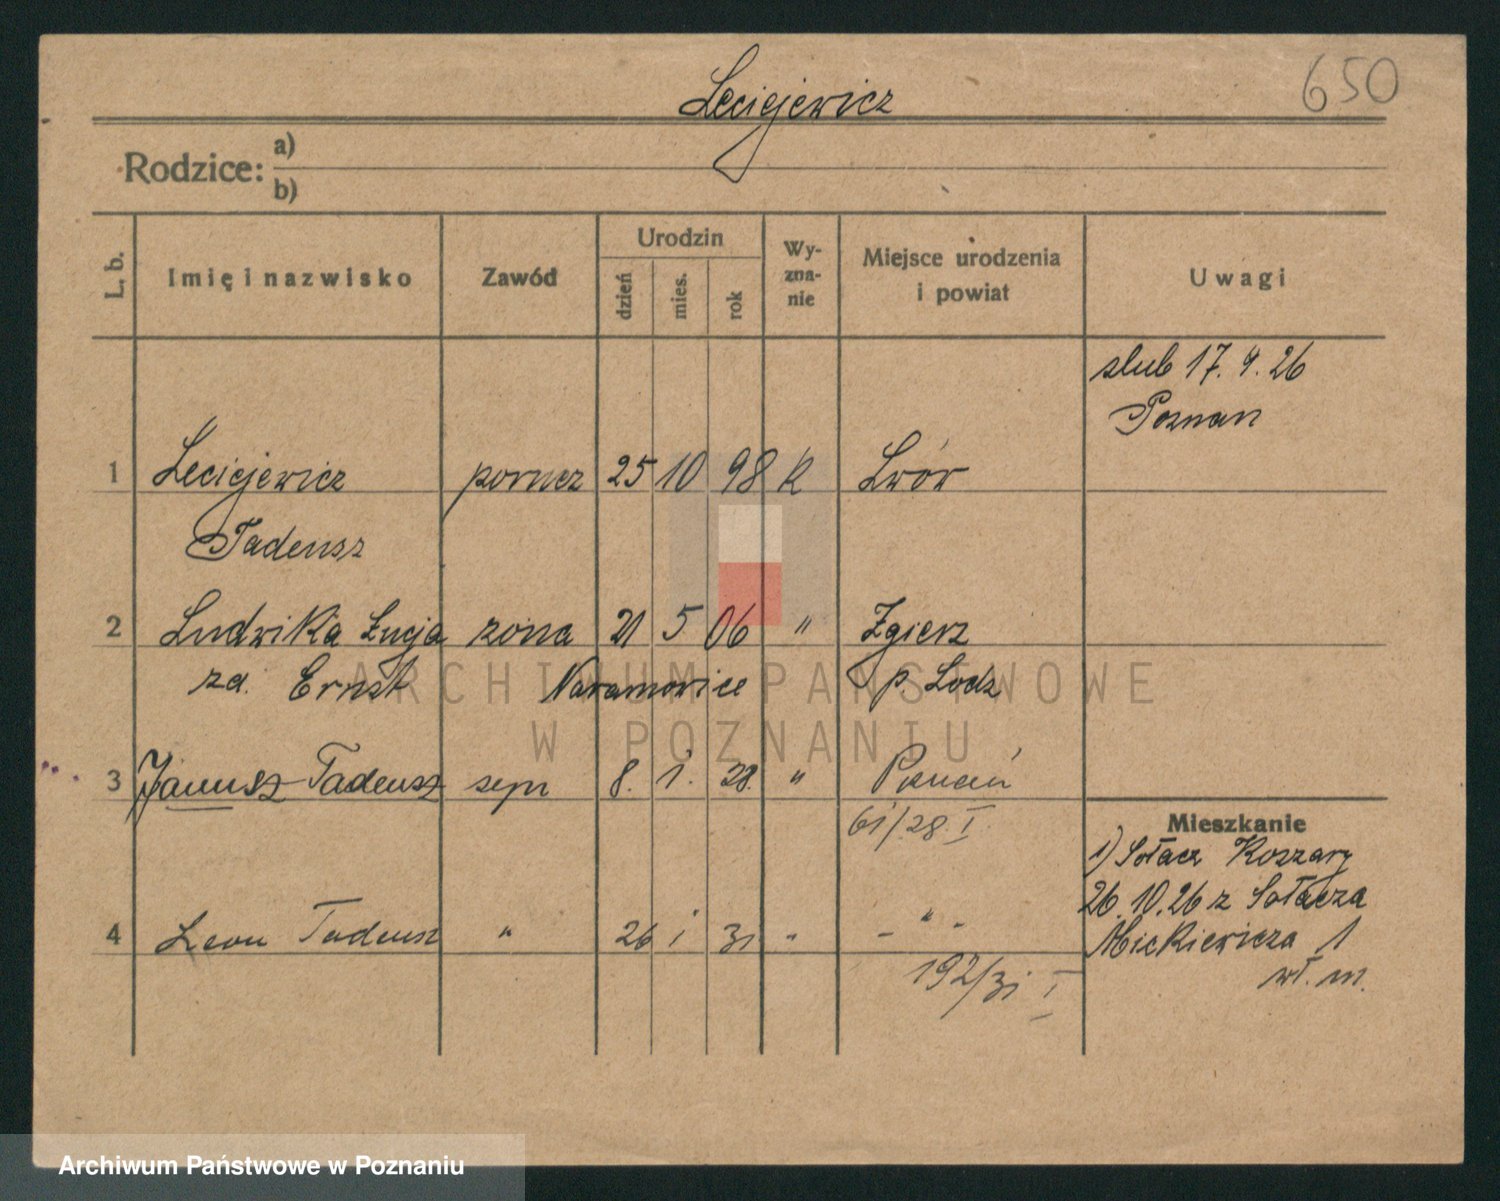 650
Leciejewicz
Rodzice: a)
b)
L. b. Imię i nazwisko Zawód Urodzin dzień mies. rok Wyznanie Miejsce urodzenia i powiat Uwagi
slub 17. 4. 26
Poznan
1 Leciejewicz porucz 25 10 98 k Lwów
Tadeusz
2 Ludwika Łucja żona 21 5 06 " Zgierz
zd. Ernst Naramowice p. Lodz
ARCHIWUM PAŃSTWOWE
W POZNANIU
3 Janusz Tadeusz syn 8. 1. 28. " Poznań
61/28 I
Mieszkanie
1) Sołacz Koszary
26.10.26 z Sołacza
4 Leon Tadeusz " 26 1 31 " - " -
Mickiewicza 1
192/31 I
wł. m.
Archiwum Państwowe w Poznaniu